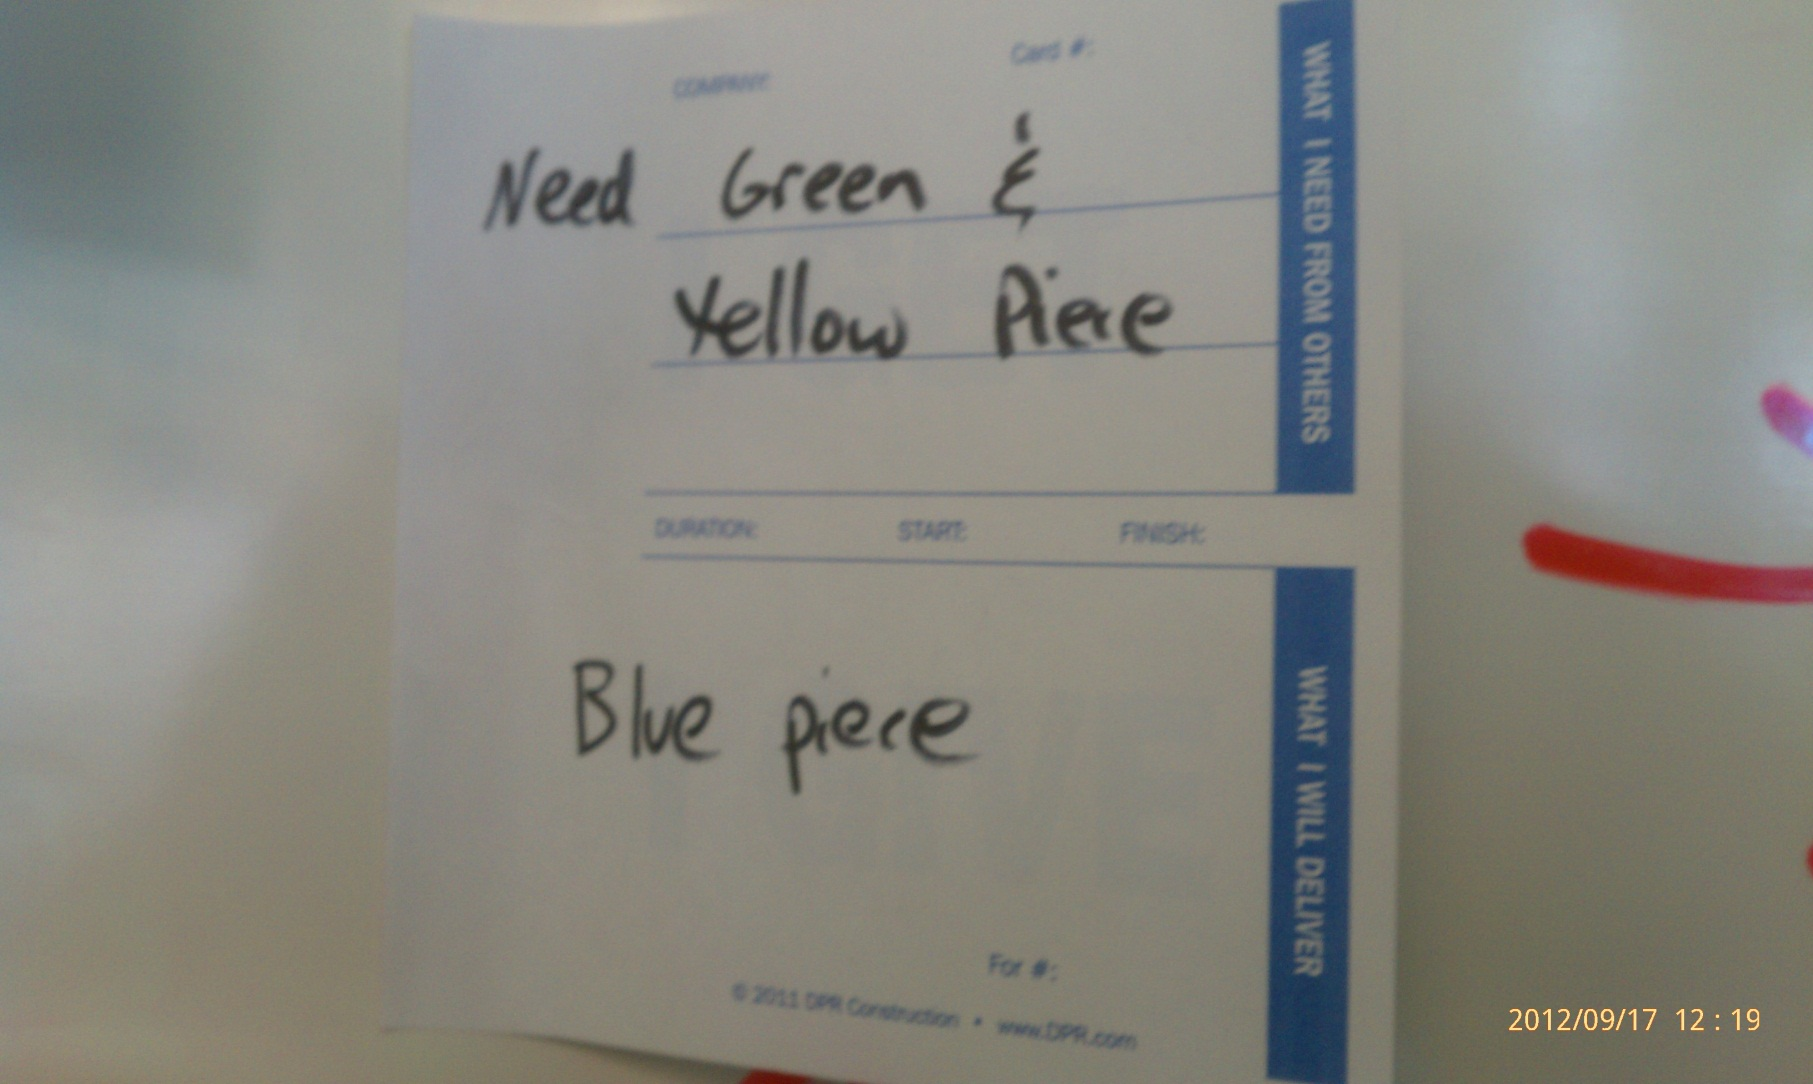 COMPANY: Card #:
Need Green &
Yellow Piece
WHAT I NEED FROM OTHERS
DURATION: START: FINISH:
Blue piece
WHAT I WILL DELIVER
For #:
© 2011 DPR Construction • www.DPR.com
2012/09/17 12:19